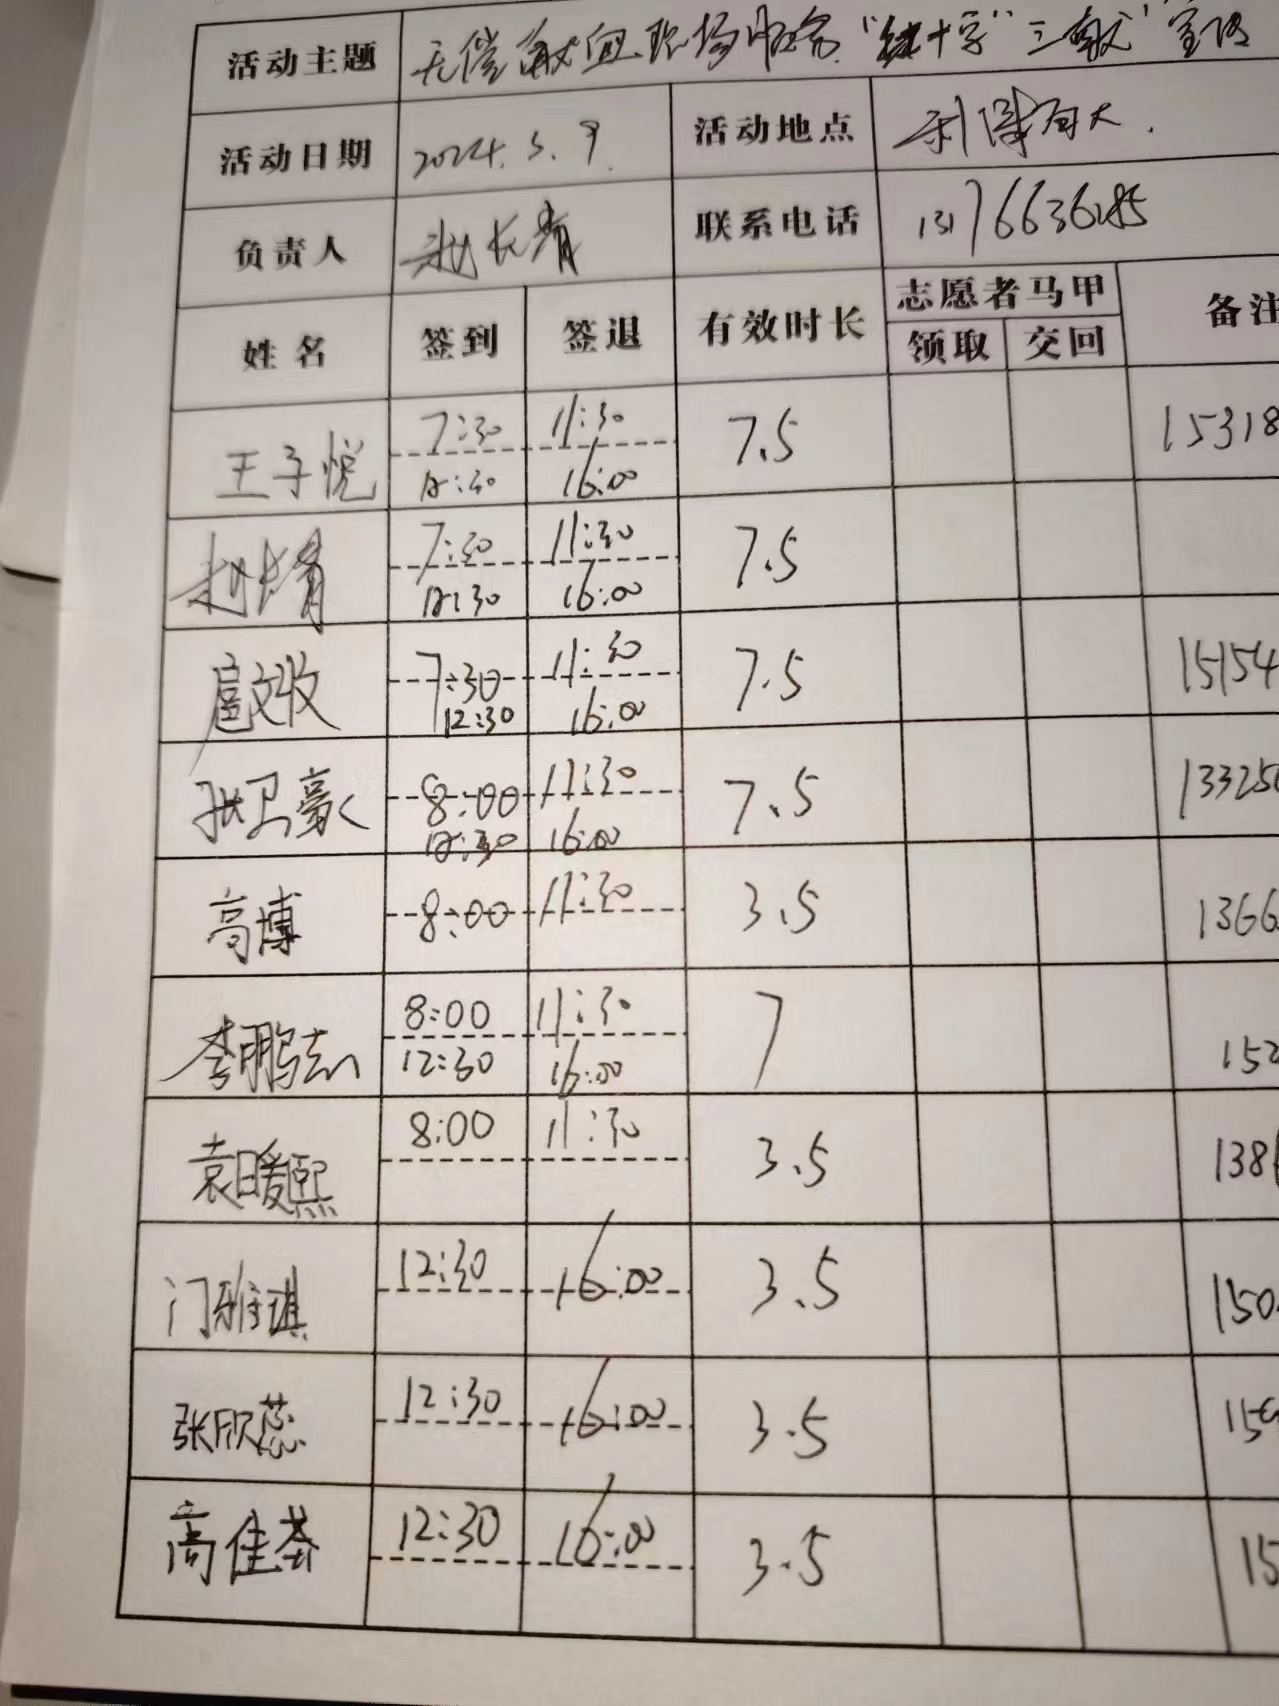 活动主题 无偿献血现场服务"红十字"三献"宣传
活动日期 2024.5.9. 活动地点
负责人 赵长青 联系电话 13176636285
姓名 签到 签退 有效时长 志愿者马甲 备注
领取 交回
王子悦 7:30 11:30 7.5 15318
12:30 16:00
赵长青 7:30 11:30 7.5
12:30 16:00
扈文收 7:30 11:30 7.5 15154
12:30 16:00
张卫豪 8:00 11:30 7.5 13325
12:30 16:00
高博 8:00 11:30 3.5 1366
李鹏志 8:00 11:30 7 152
12:30 16:00
袁暖熙 8:00 11:30 3.5 138
门雅琪 12:30 16:00 3.5 150
张欣蕊 12:30 16:00 3.5 15
高佳荟 12:30 16:00 3.5 15